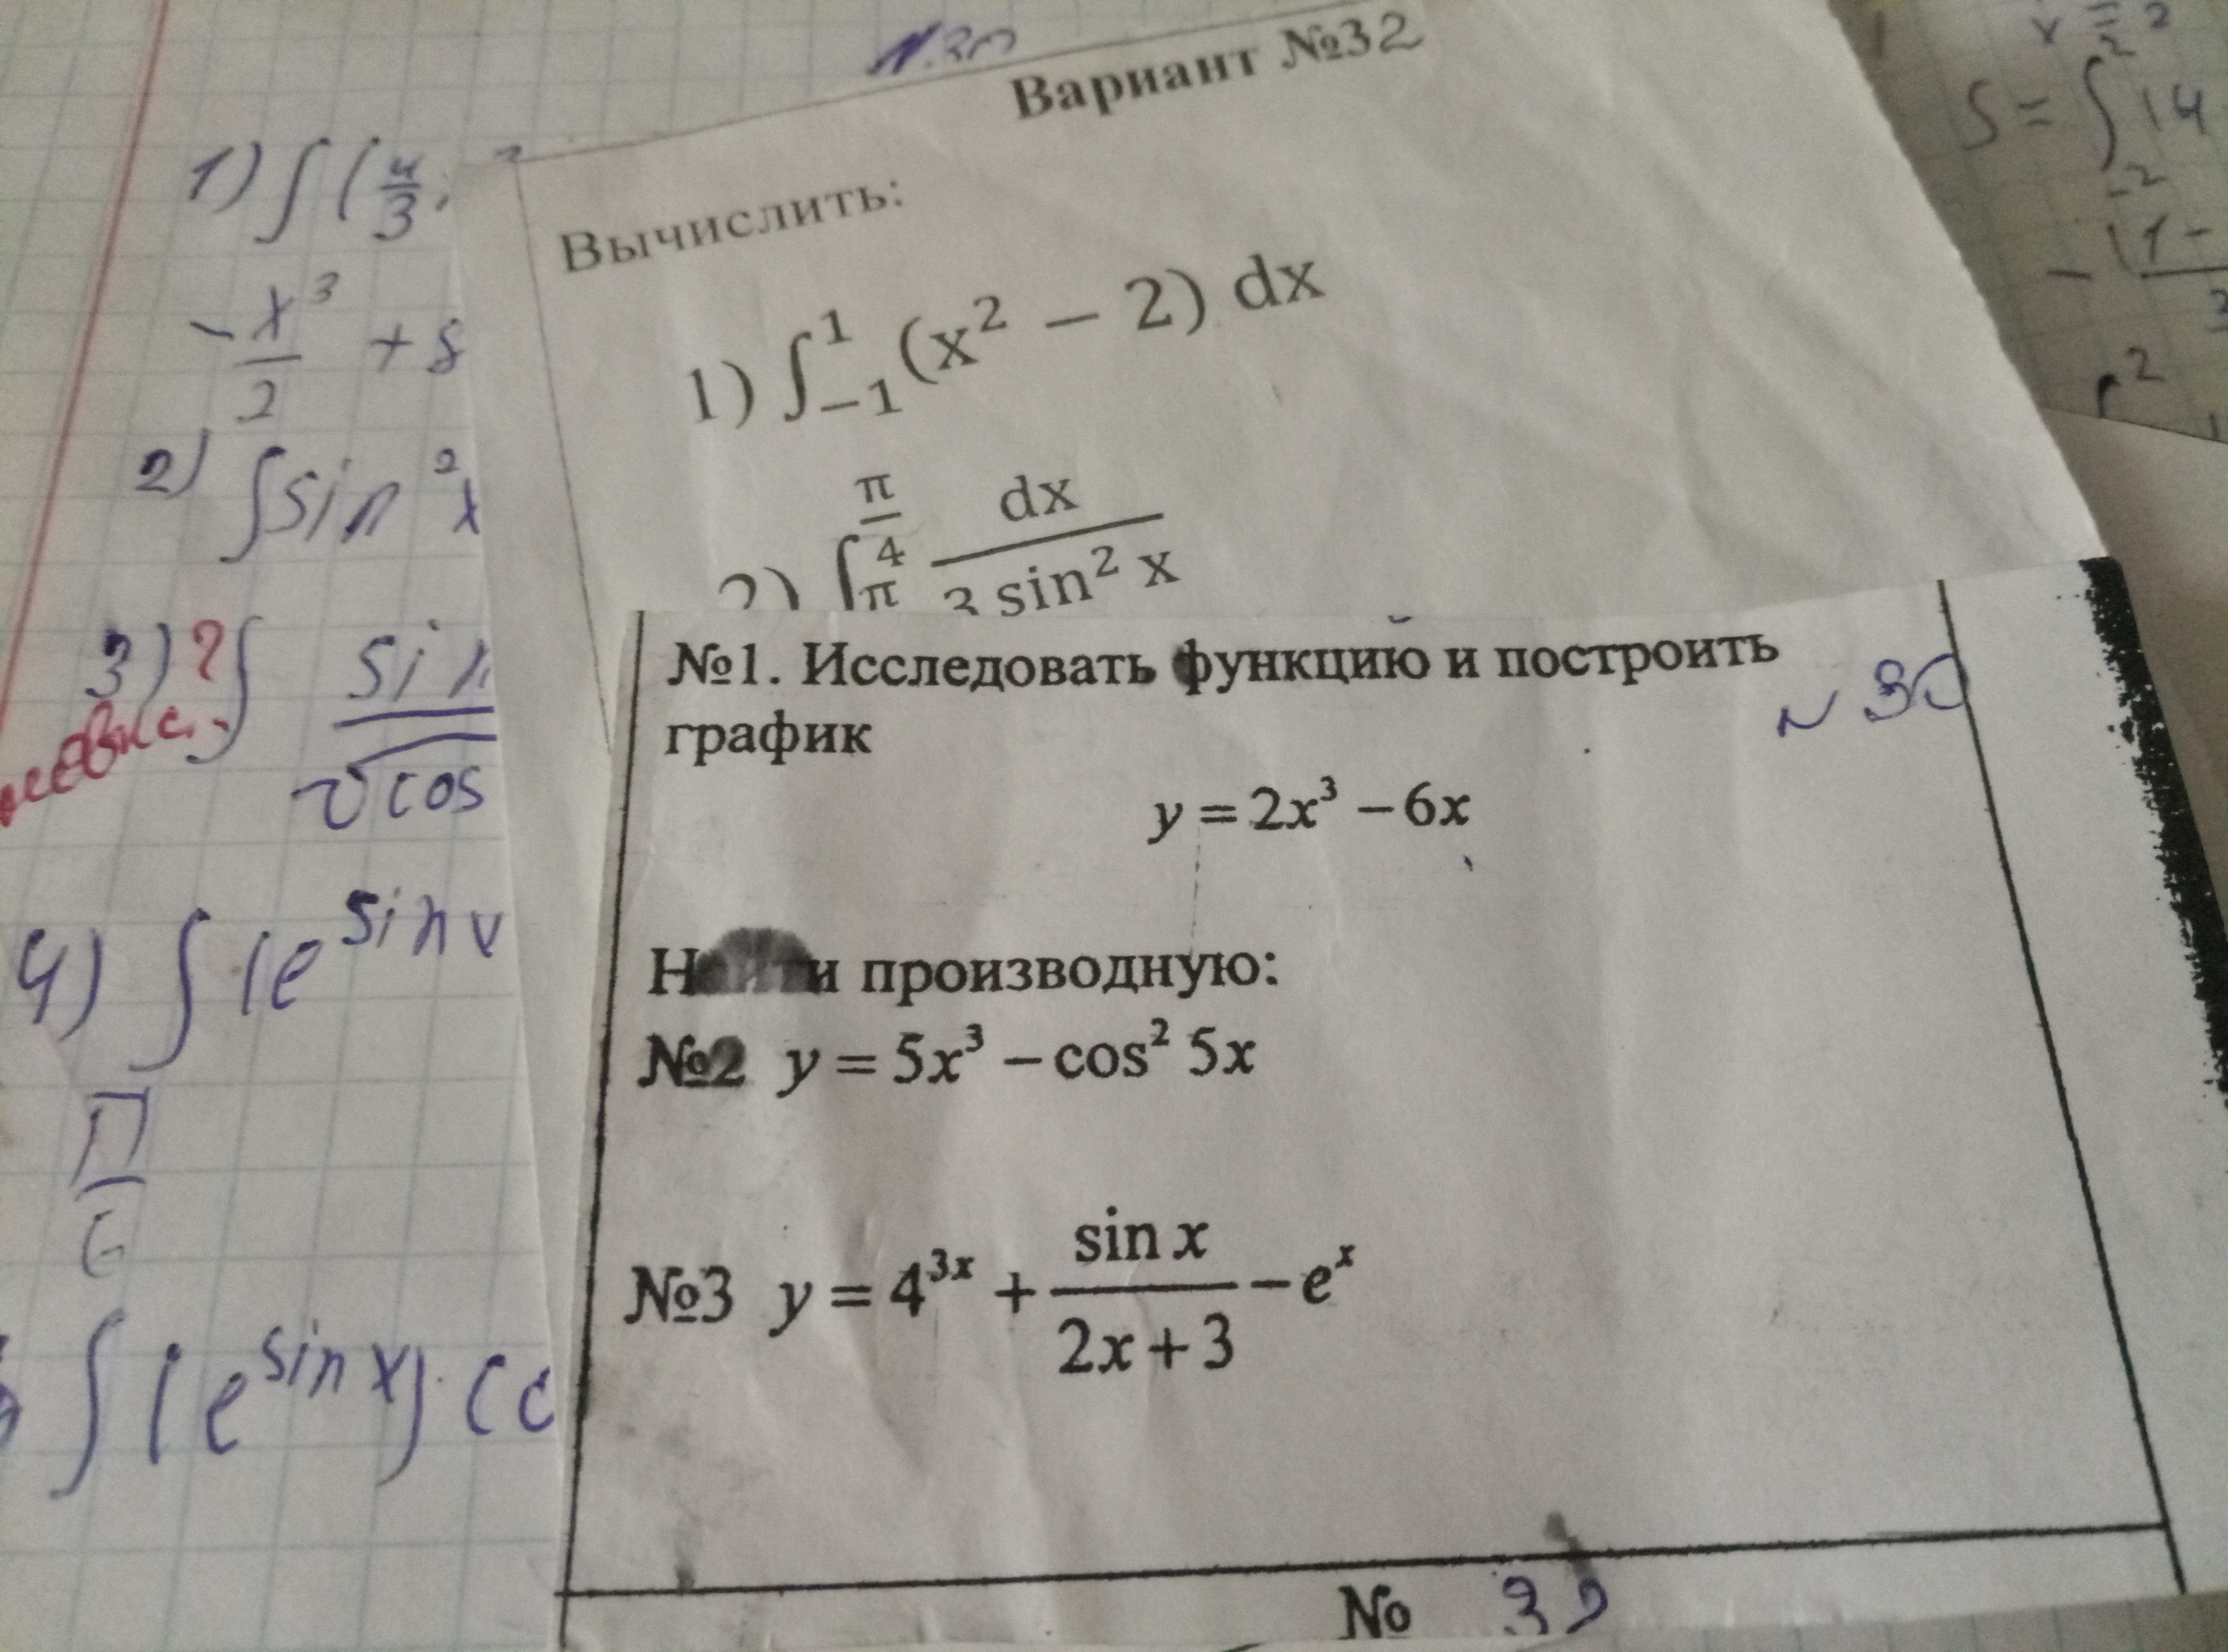 Вариант №32
Вычислить:
1) ∫₋₁¹ (x² − 2) dx
2) ∫ π/4 π dx / 3 sin² x
№1. Исследовать функцию и построить
график
№ 30
y = 2x³ − 6x
Найти производную:
№2 y = 5x³ − cos² 5x
№3 y = 4³ˣ + sin x / 2x + 3 − eˣ
№
1) ∫ ( 4/3
− x³/2 + 8
2) ∫ sin² x
3) ? ∫ sin / √cos
4) ∫ (e^sin x
П/6
∫ (e^sin x) · (c
S = ∫₋₂² 14